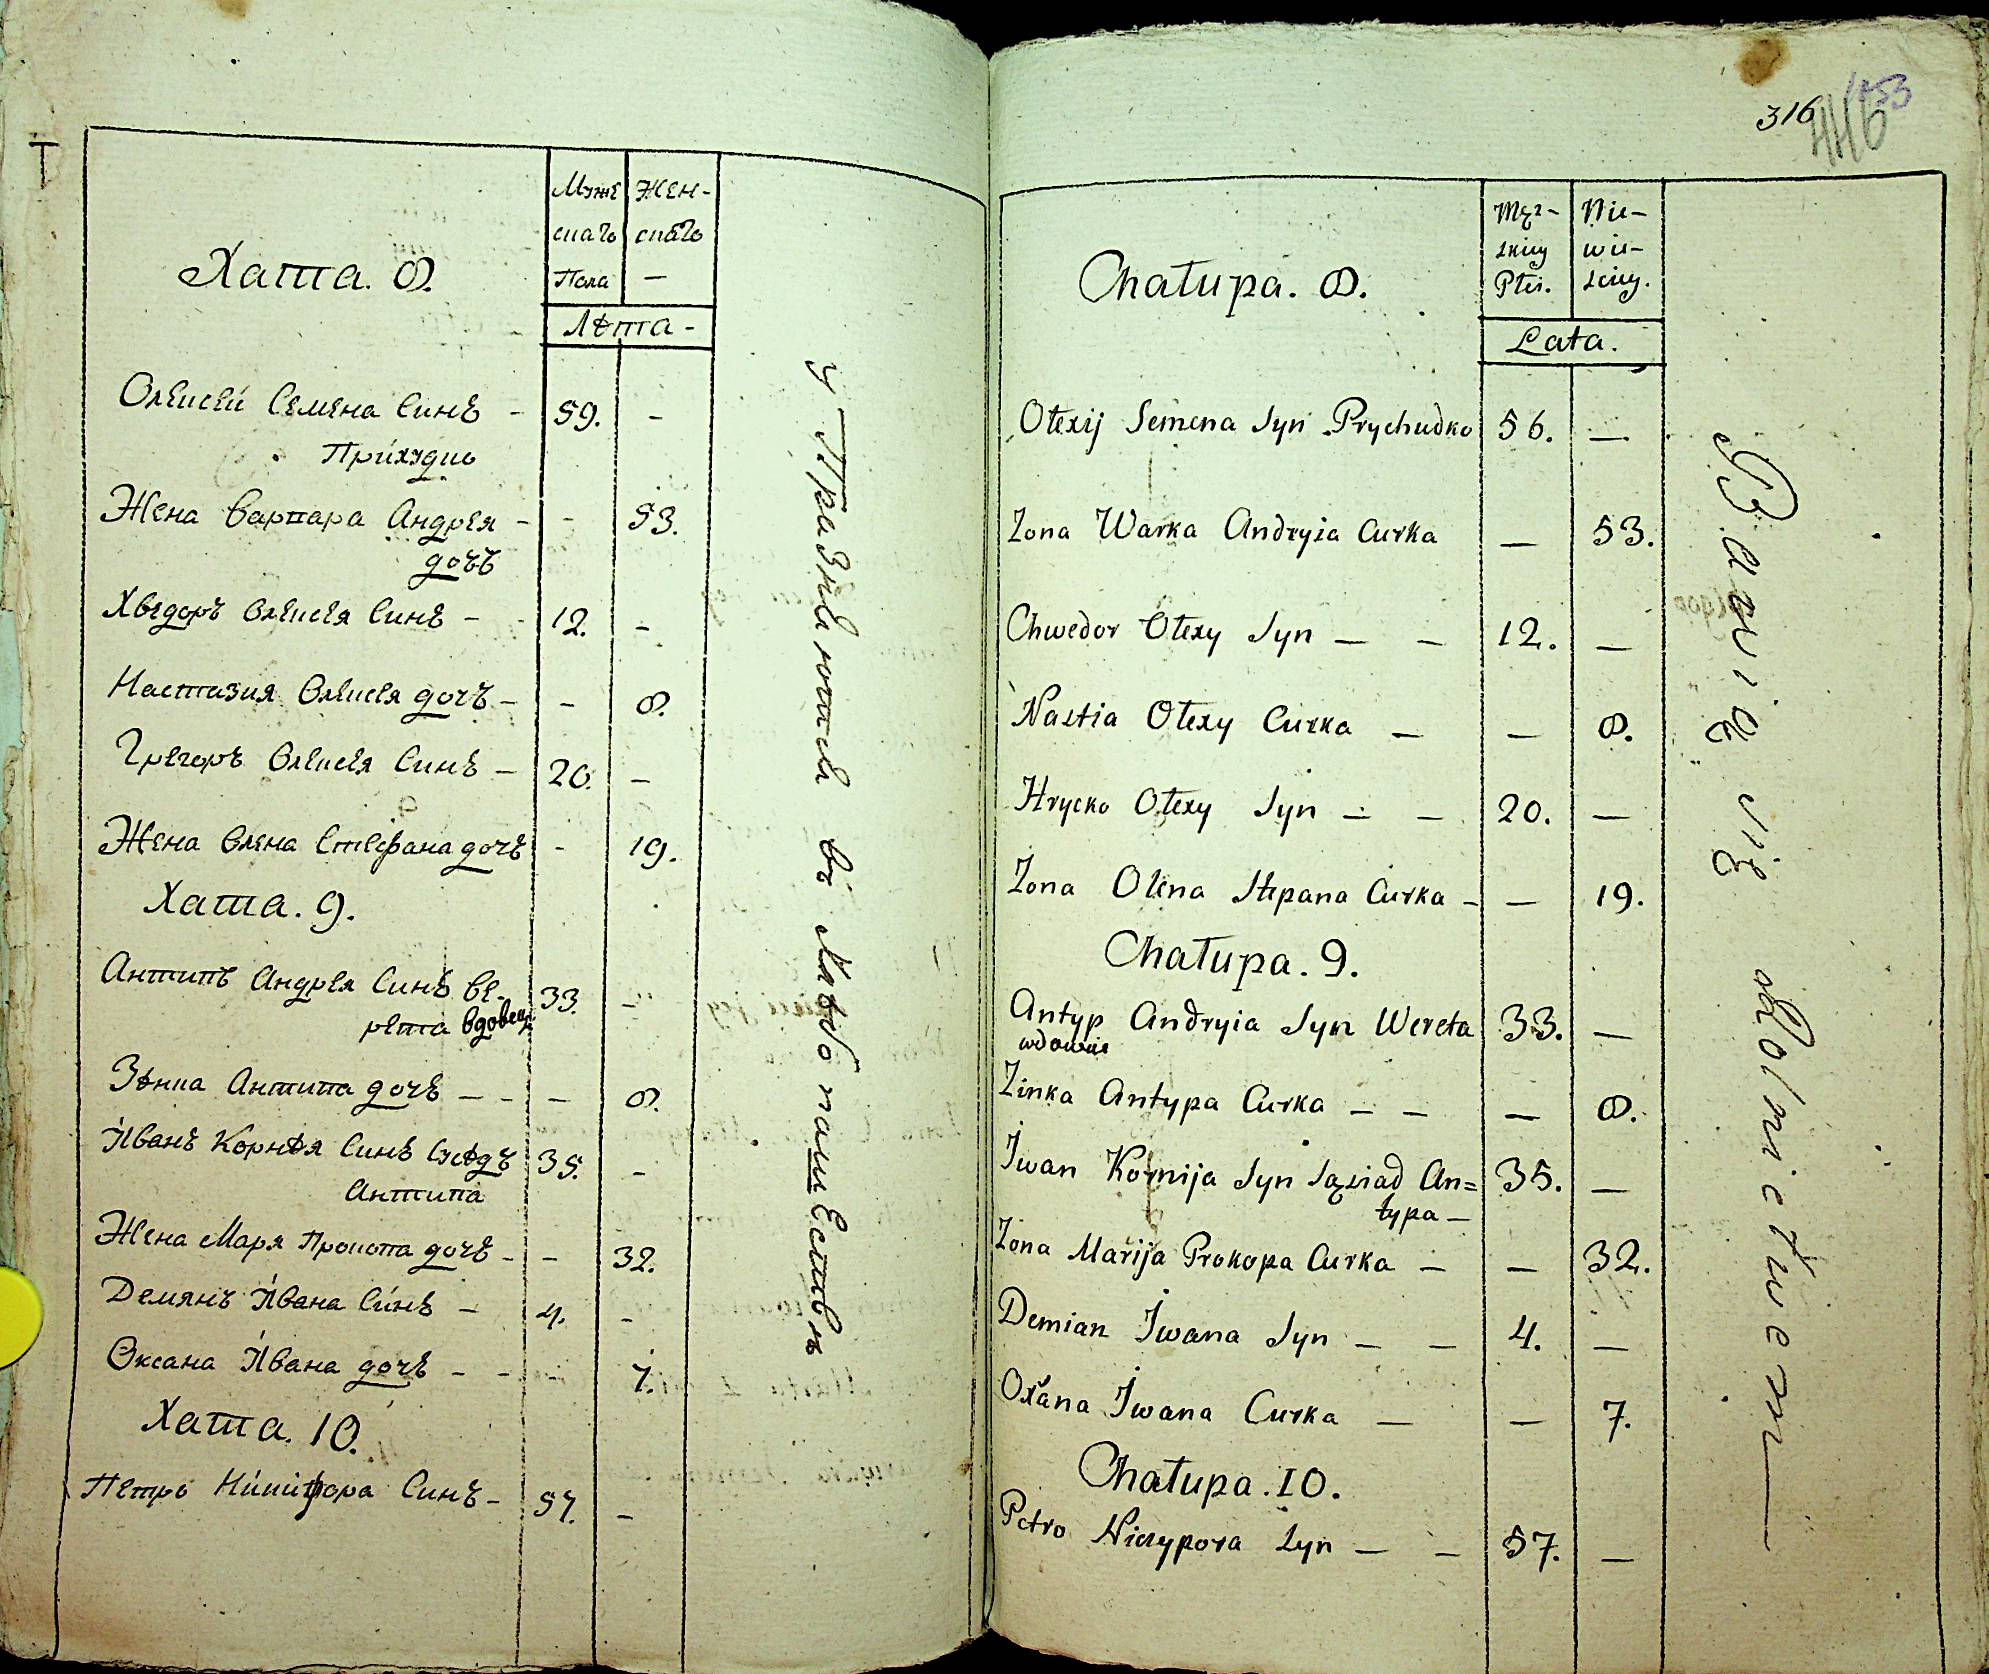 Хата. 8.
Муже
скаго
Пола
Жен-
скаго
—
Лѣта -
Олексей Семена Синъ - 59. -
Приходко
Жена Варвара Андрея - - 53.
дочъ
Хведоръ Олексея Синъ - 12. -
Настазия Олексея дочъ - - 8.
Грегоръ Олексея Синъ - 20. -
Жена Олена Стефана дочъ - 19.
Хата. 9.
Антипъ Андрея Синъ Ве- 33. -
рета вдовец
Зѣнка Антипа дочъ - - - 8.
Иванъ Корнѣя Синъ Сусѣдъ 35. -
Антипа
Жена Маря Прокопа дочъ - - 32.
Демянъ Ивана Синъ - 4. -
Оксана Ивана дочъ - - - 7.
Хата. 10.
Петро Никифора Синъ - 57. -
упражняются въ Хлѣбопашествѣ
316
Chałupa. 8.
Męz-
skiey
Płci.
Nie-
wie-
sciey.
Lata.
Ołexij Semena Syn Prychudko 56. —
Zona Warka Andryia Curka — 53.
Chwedor Ołexy Syn — — 12. —
Nastia Ołexy Curka — — 8.
Hrycko Ołexy Syn — — 20. —
Zona Olena Stepana Curka - — 19.
Chałupa. 9.
Antyp Andryia Syn Wereta 33. —
wdowiec
Zinka Antypa Curka — — — 8.
Iwan Kornija Syn Sąsiad An= 35. —
typa —
Zona Marija Prokopa Curka — — 32.
Demian Iwana Syn — — 4. —
Oxana Iwana Curka — — 7.
Chałupa. 10.
Petro Niczypora Syn — — 57. —
Bawią się Rolnictwem —